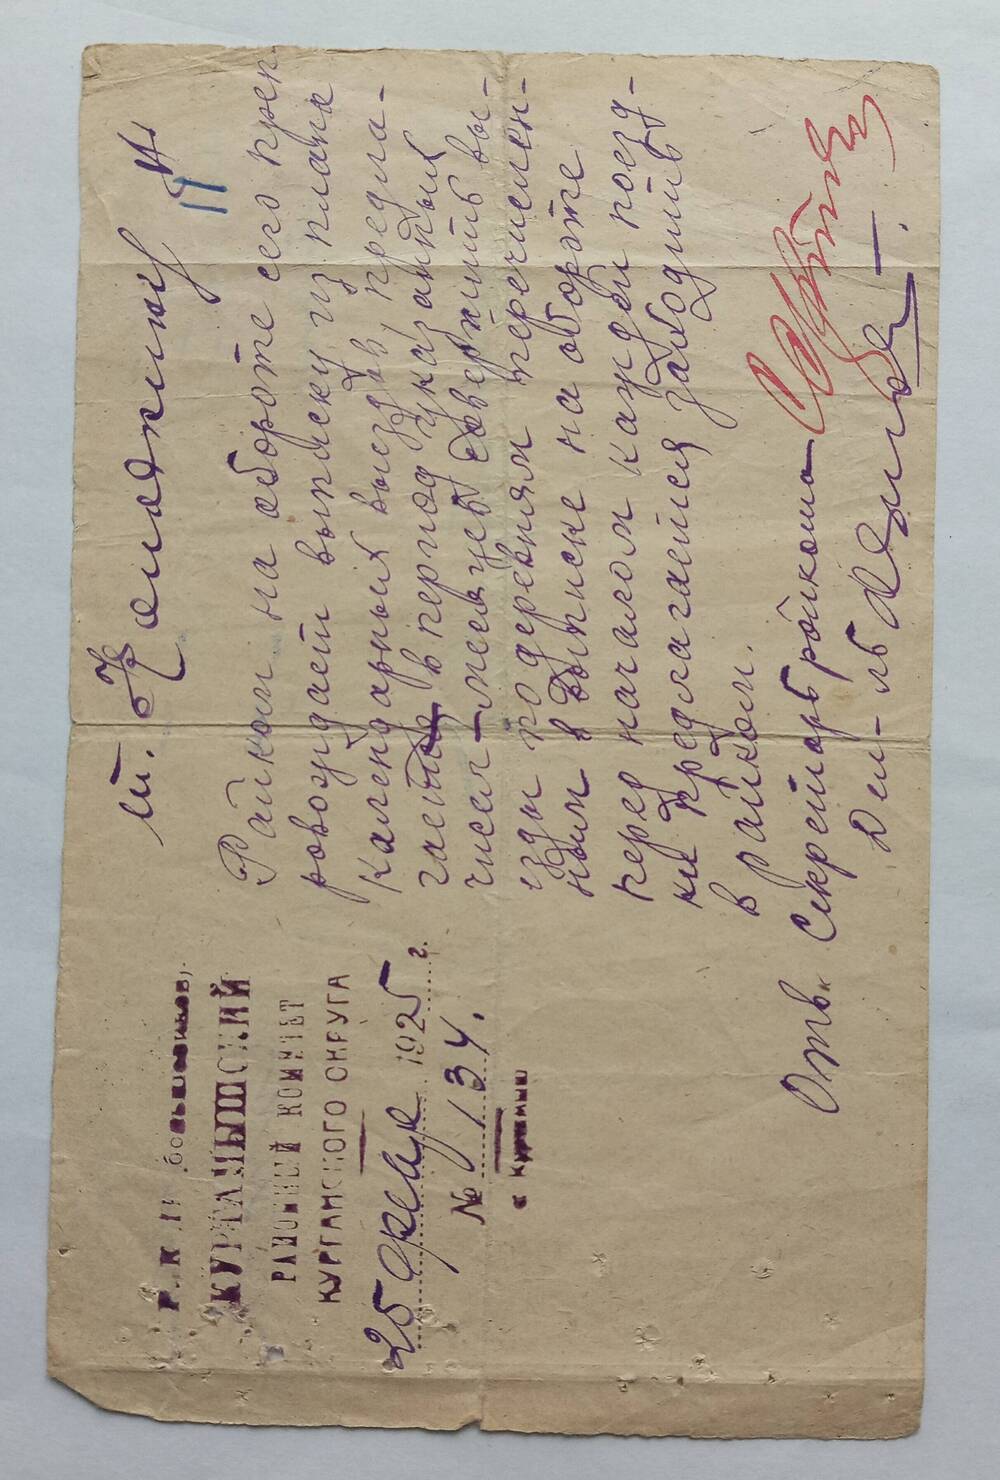 Р.К.П. большевиков,
КУРТАМЫШСКИЙ
РАЙОННЫЙ КОМИТЕТ
КУРГАНСКОГО ОКРУГА
25 февр 1925 г.
№ 134.
с Куртамыш
т.
Райком на обороте сего преп
ровождает выписку из плана
календарных выездов, предла-
гается в период указанных
чисел – месяцев совершить вы-
езды по деревням перечислен-
ным в выписке на обороте
перед началом каждой поезд-
ки предлагается заходить
в райком.
Отв. Секретарь райкома
Дел-ль